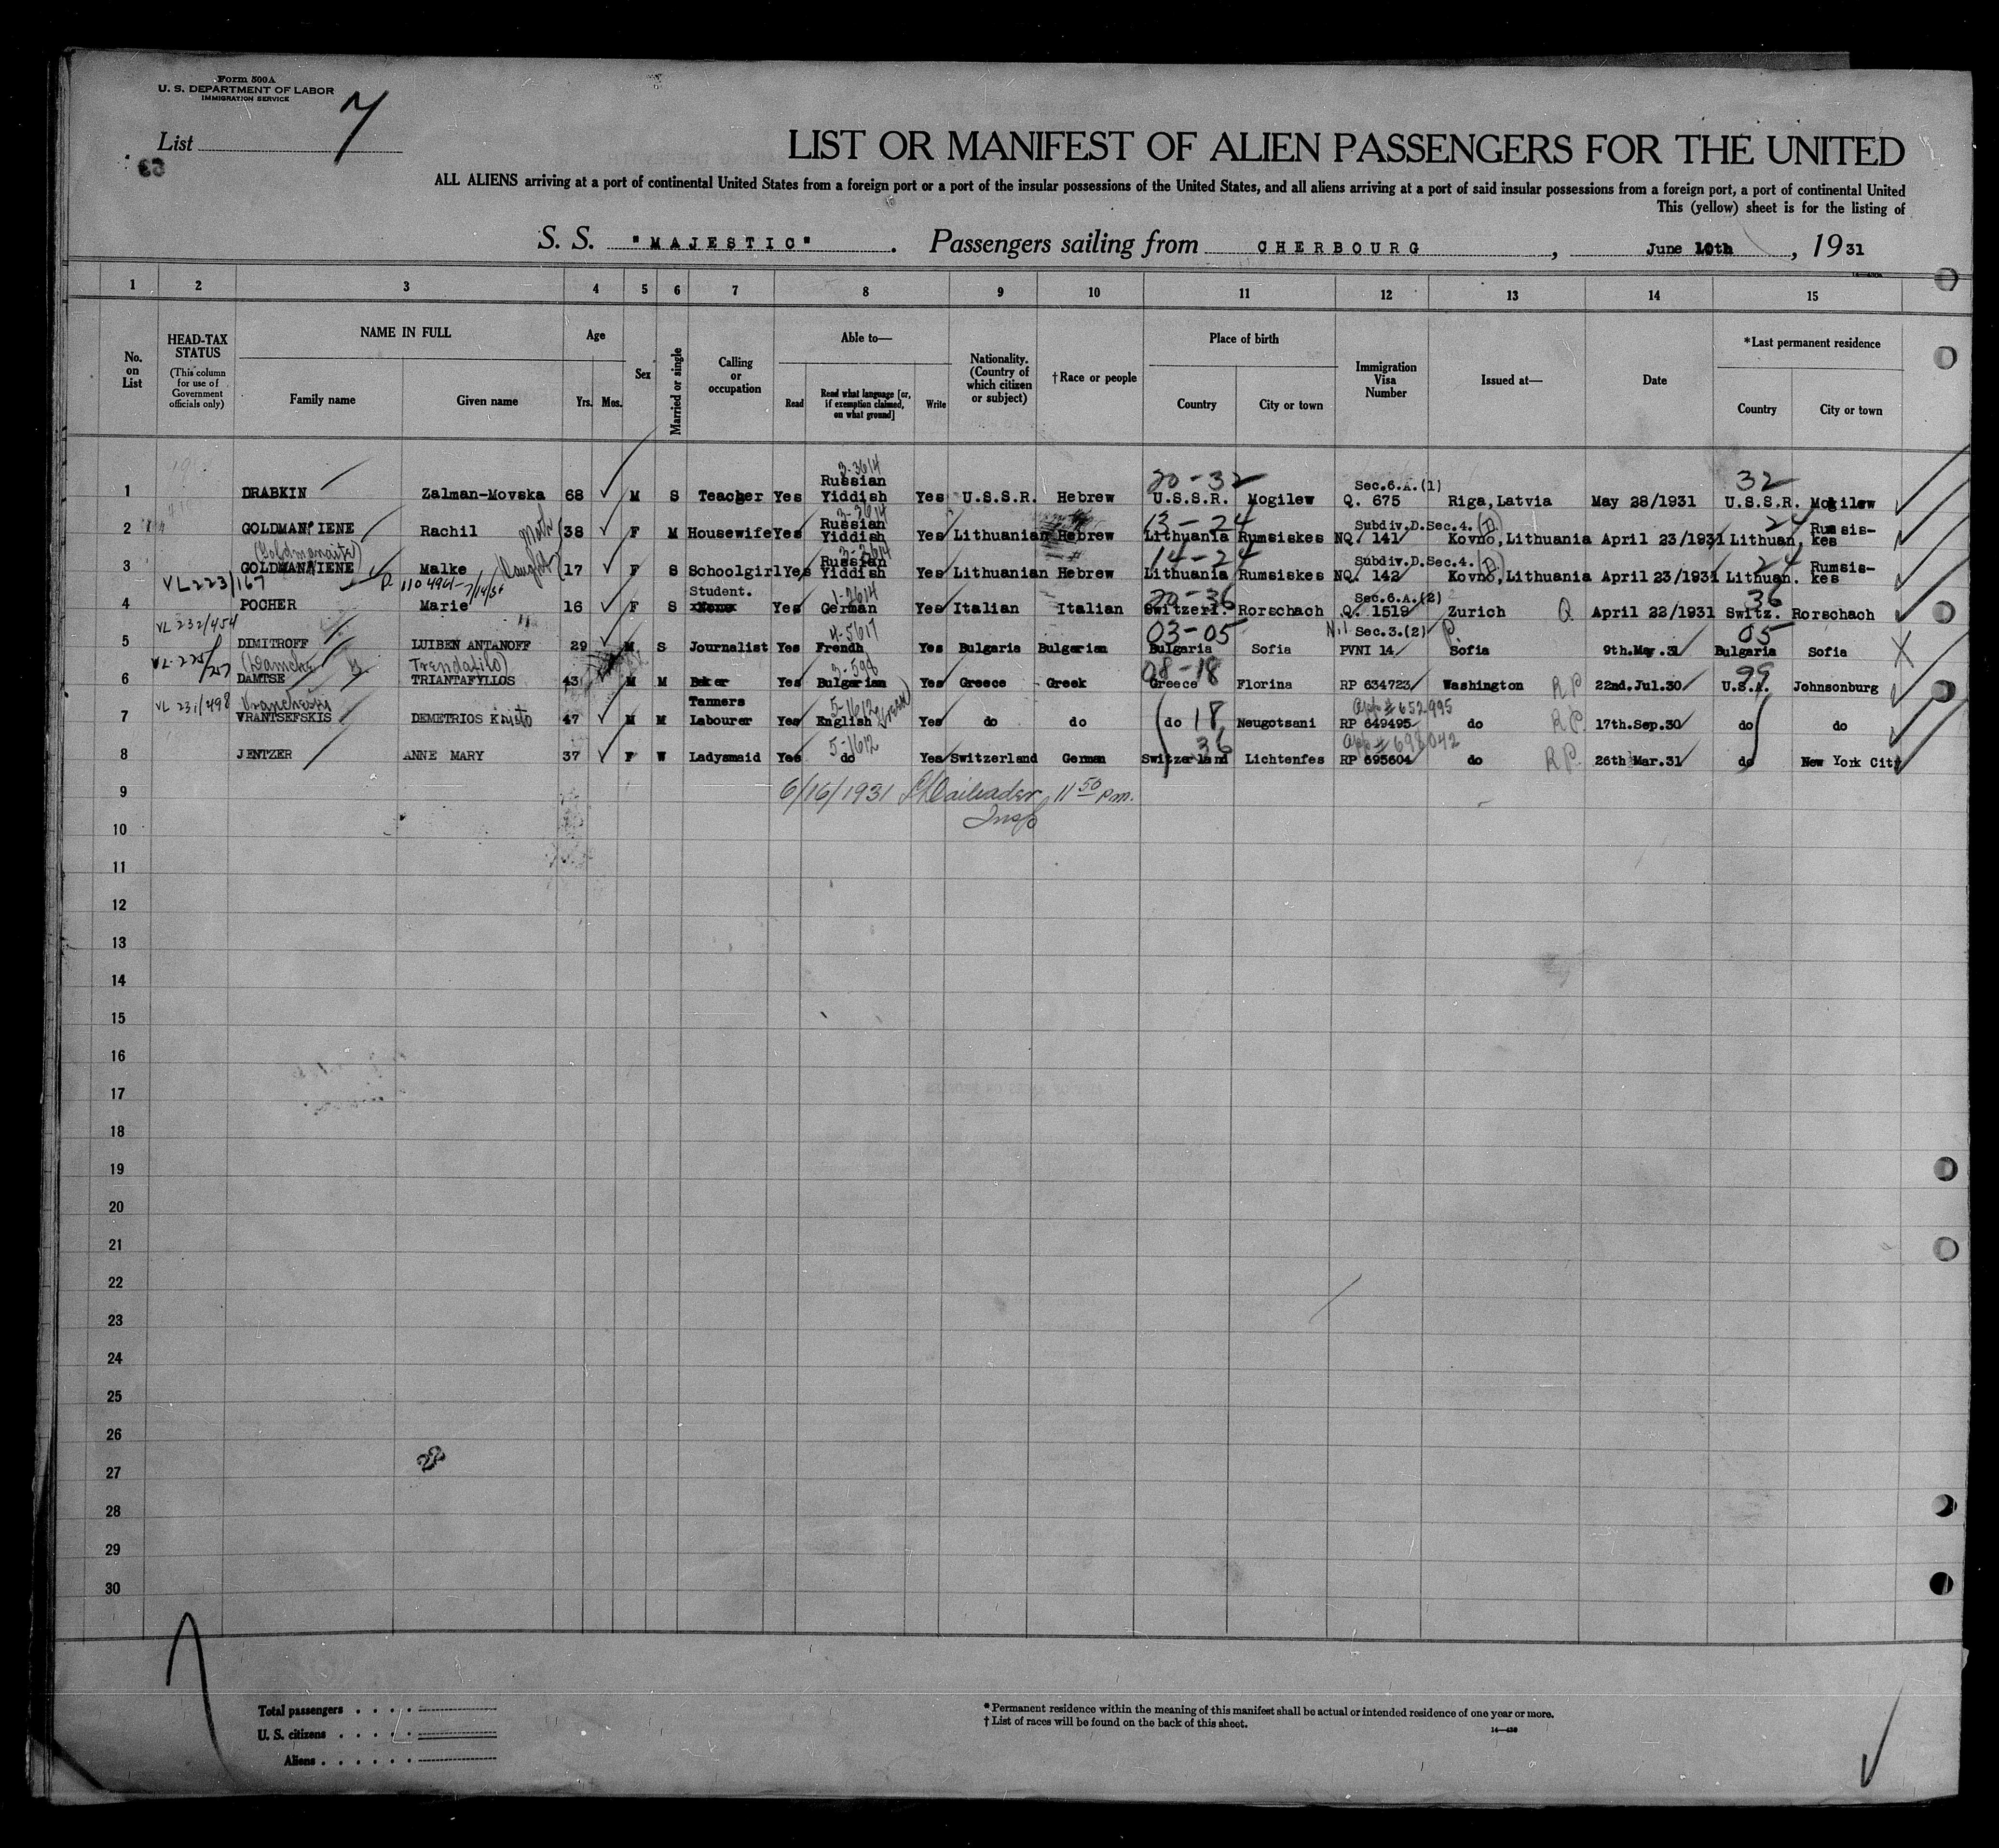 Form 500A
U. S. DEPARTMENT OF LABOR
IMMIGRATION SERVICE
List 7
63
LIST OR MANIFEST OF ALIEN PASSENGERS FOR THE UNITED
ALL ALIENS arriving at a port of continental United States from a foreign port or a port of the insular possessions of the United States, and all aliens arriving at a port of said insular possessions from a foreign port, a port of continental United
This (yellow) sheet is for the listing of
S. S. "MAJESTIC" . Passengers sailing from CHERBOURG , June 10th , 1931
1 2 3 4 5 6 7 8 9 10 11 12 13 14 15
No. on List
HEAD-TAX STATUS (This column for use of Government officials only)
NAME IN FULL Family name Given name
Age Yrs. Mos.
Sex
Married or single
Calling or occupation
Able to— Read Read what language [or, if exemption claimed, on what ground] Write
Nationality. (Country of which citizen or subject)
†Race or people
Place of birth Country City or town
Immigration Visa Number
Issued at—
Date
*Last permanent residence Country City or town
3-3614 20-32 Sec.6.A.(1) 32
1 DRABKIN Zalman-Movska 68 M S Teacher Yes Russian Yiddish Yes U.S.S.R. Hebrew U.S.S.R. Mogilew Q. 675 Riga, Latvia May 28/1931 U.S.S.R. Mogilew
3-2614 13-24 Subdiv.D.Sec.4. 24
2 GOLDMAN'IENE Rachil moth 38 F M Housewife Yes Russian Yiddish Yes Lithuanian Hebrew Lithuania Rumsiskes NQ. 141 Kovno, Lithuania April 23/1931 Lithuan. Rumsis-kes
(Goldmanaite) 3-3614 14-24 Subdiv.D.Sec.4. 24
3 GOLDMAN'IENE Malke daught 17 F S Schoolgirl Yes Russian Yiddish Yes Lithuanian Hebrew Lithuania Rumsiskes NQ. 142 Kovno, Lithuania April 23/1931 Lithuan. Rumsis-kes
VL 223/167 110494-7/14/51 Student. 1-2614 20-36 Sec.6.A.(2) 36
4 POCHER Marie 16 F S None Yes German Yes Italian Italian Switzerl. Rorschach Q. 1519 Zurich Q April 22/1931 Switz. Rorschach
VL 232/454 4-5617 03-05 Nil Sec.3.(2) P. 05
5 DIMITROFF LUIBEN ANTANOFF 29 M S Journalist Yes Frendh Yes Bulgaria Bulgarian Bulgaria Sofia PVNI 14 Sofia 9th.May.31 Bulgaria Sofia
VL-225/257 (Damcheff Trendafilo) 3-598 08-18 99
6 DAMTSE TRIANTAFYLLOS 43 M M Baker Yes Bulgarian Yes Greece Greek Greece Florina RP 634723 Washington RP 22nd.Jul.30 U.S.A. Johnsonburg
VL 231/498 Vrancheski Tanners 5-1612 (Greek) 18 App # 652,995
7 VRANTSEFSKIS DEMETRIOS Kristo 47 M M Labourer Yes English Yes do do do Neugotsani RP 649495 do RP. 17th.Sep.30 do do
5-1612 36 App # 698042
8 JENTZER ANNE MARY 37 F W Ladysmaid Yes do Yes Switzerland German Switzerland Lichtenfes RP 695604 do RP. 26th Mar.31 do New York City
9 6/16/1931 11 50 p.m.
10 Insp
11
12
13
14
15
16
17
18
19
20
21
22
23
24
25
26
27
28
29
30
Total passengers . . . .
U. S. citizens . . . . .
Aliens . . . . . .
* Permanent residence within the meaning of this manifest shall be actual or intended residence of one year or more.
† List of races will be found on the back of this sheet.
14—430